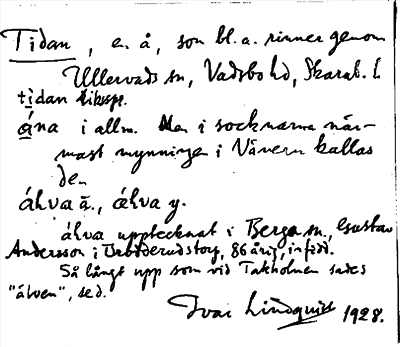 Tidan, en å, som bl.a. rinner genom
Ullervads sn, Vadsbo hd, Skarab. l.
tidan riksspr.
ána i allm. Men i socknarna när-
mast mynningen i Vänern kallas
den
áhva ā., ǽhva y.
áhva upptecknat i Berga sn, Gustav
Andersson i 86 årig, infödd.
Så långt upp som vid Takholmen sades
"älven", sed.
Ivar Lindquist 1928.